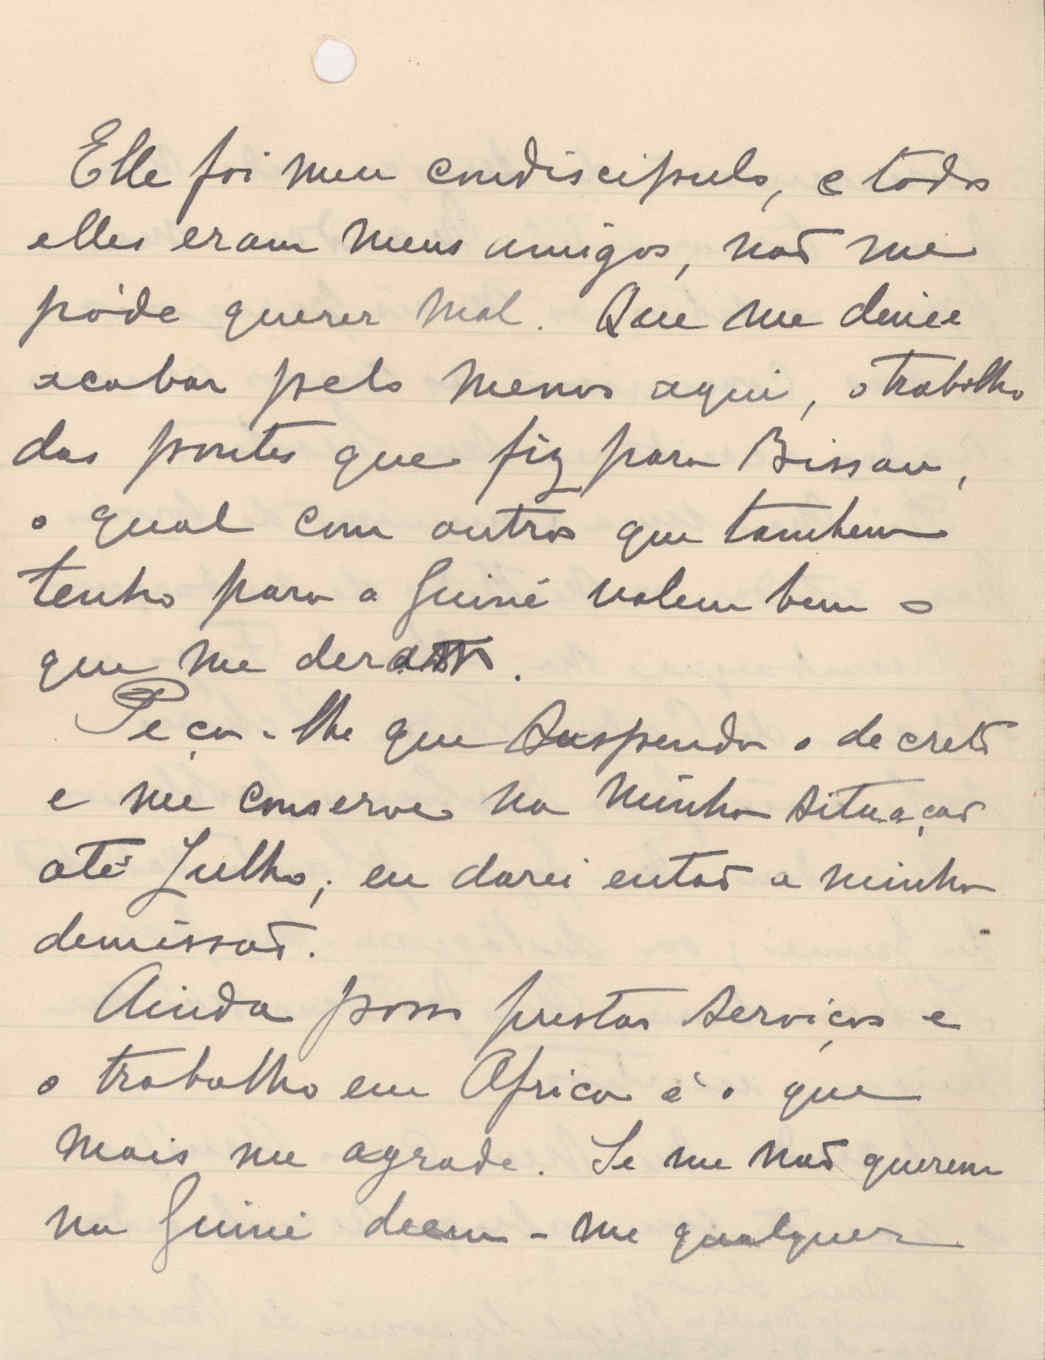 Elle foi meu condiscipulo, e todos
elles eram meus amigos, não me
póde querer mal. Que me deixe
acabar pelo menos aqui, o trabalho
das pontes que fiz para Bissau,
o qual com outros que tambem
tenho para a Guiné valem bem o
que me deram.
Peço-lhe que suspenda o decreto
e me conserve na minha situação
até Julho; eu darei então a minha
demissão.
Ainda posso prestar serviços e
o trabalho em Africa é o que
mais me agrada. Se me não querem
na Guiné deem-me qualquer